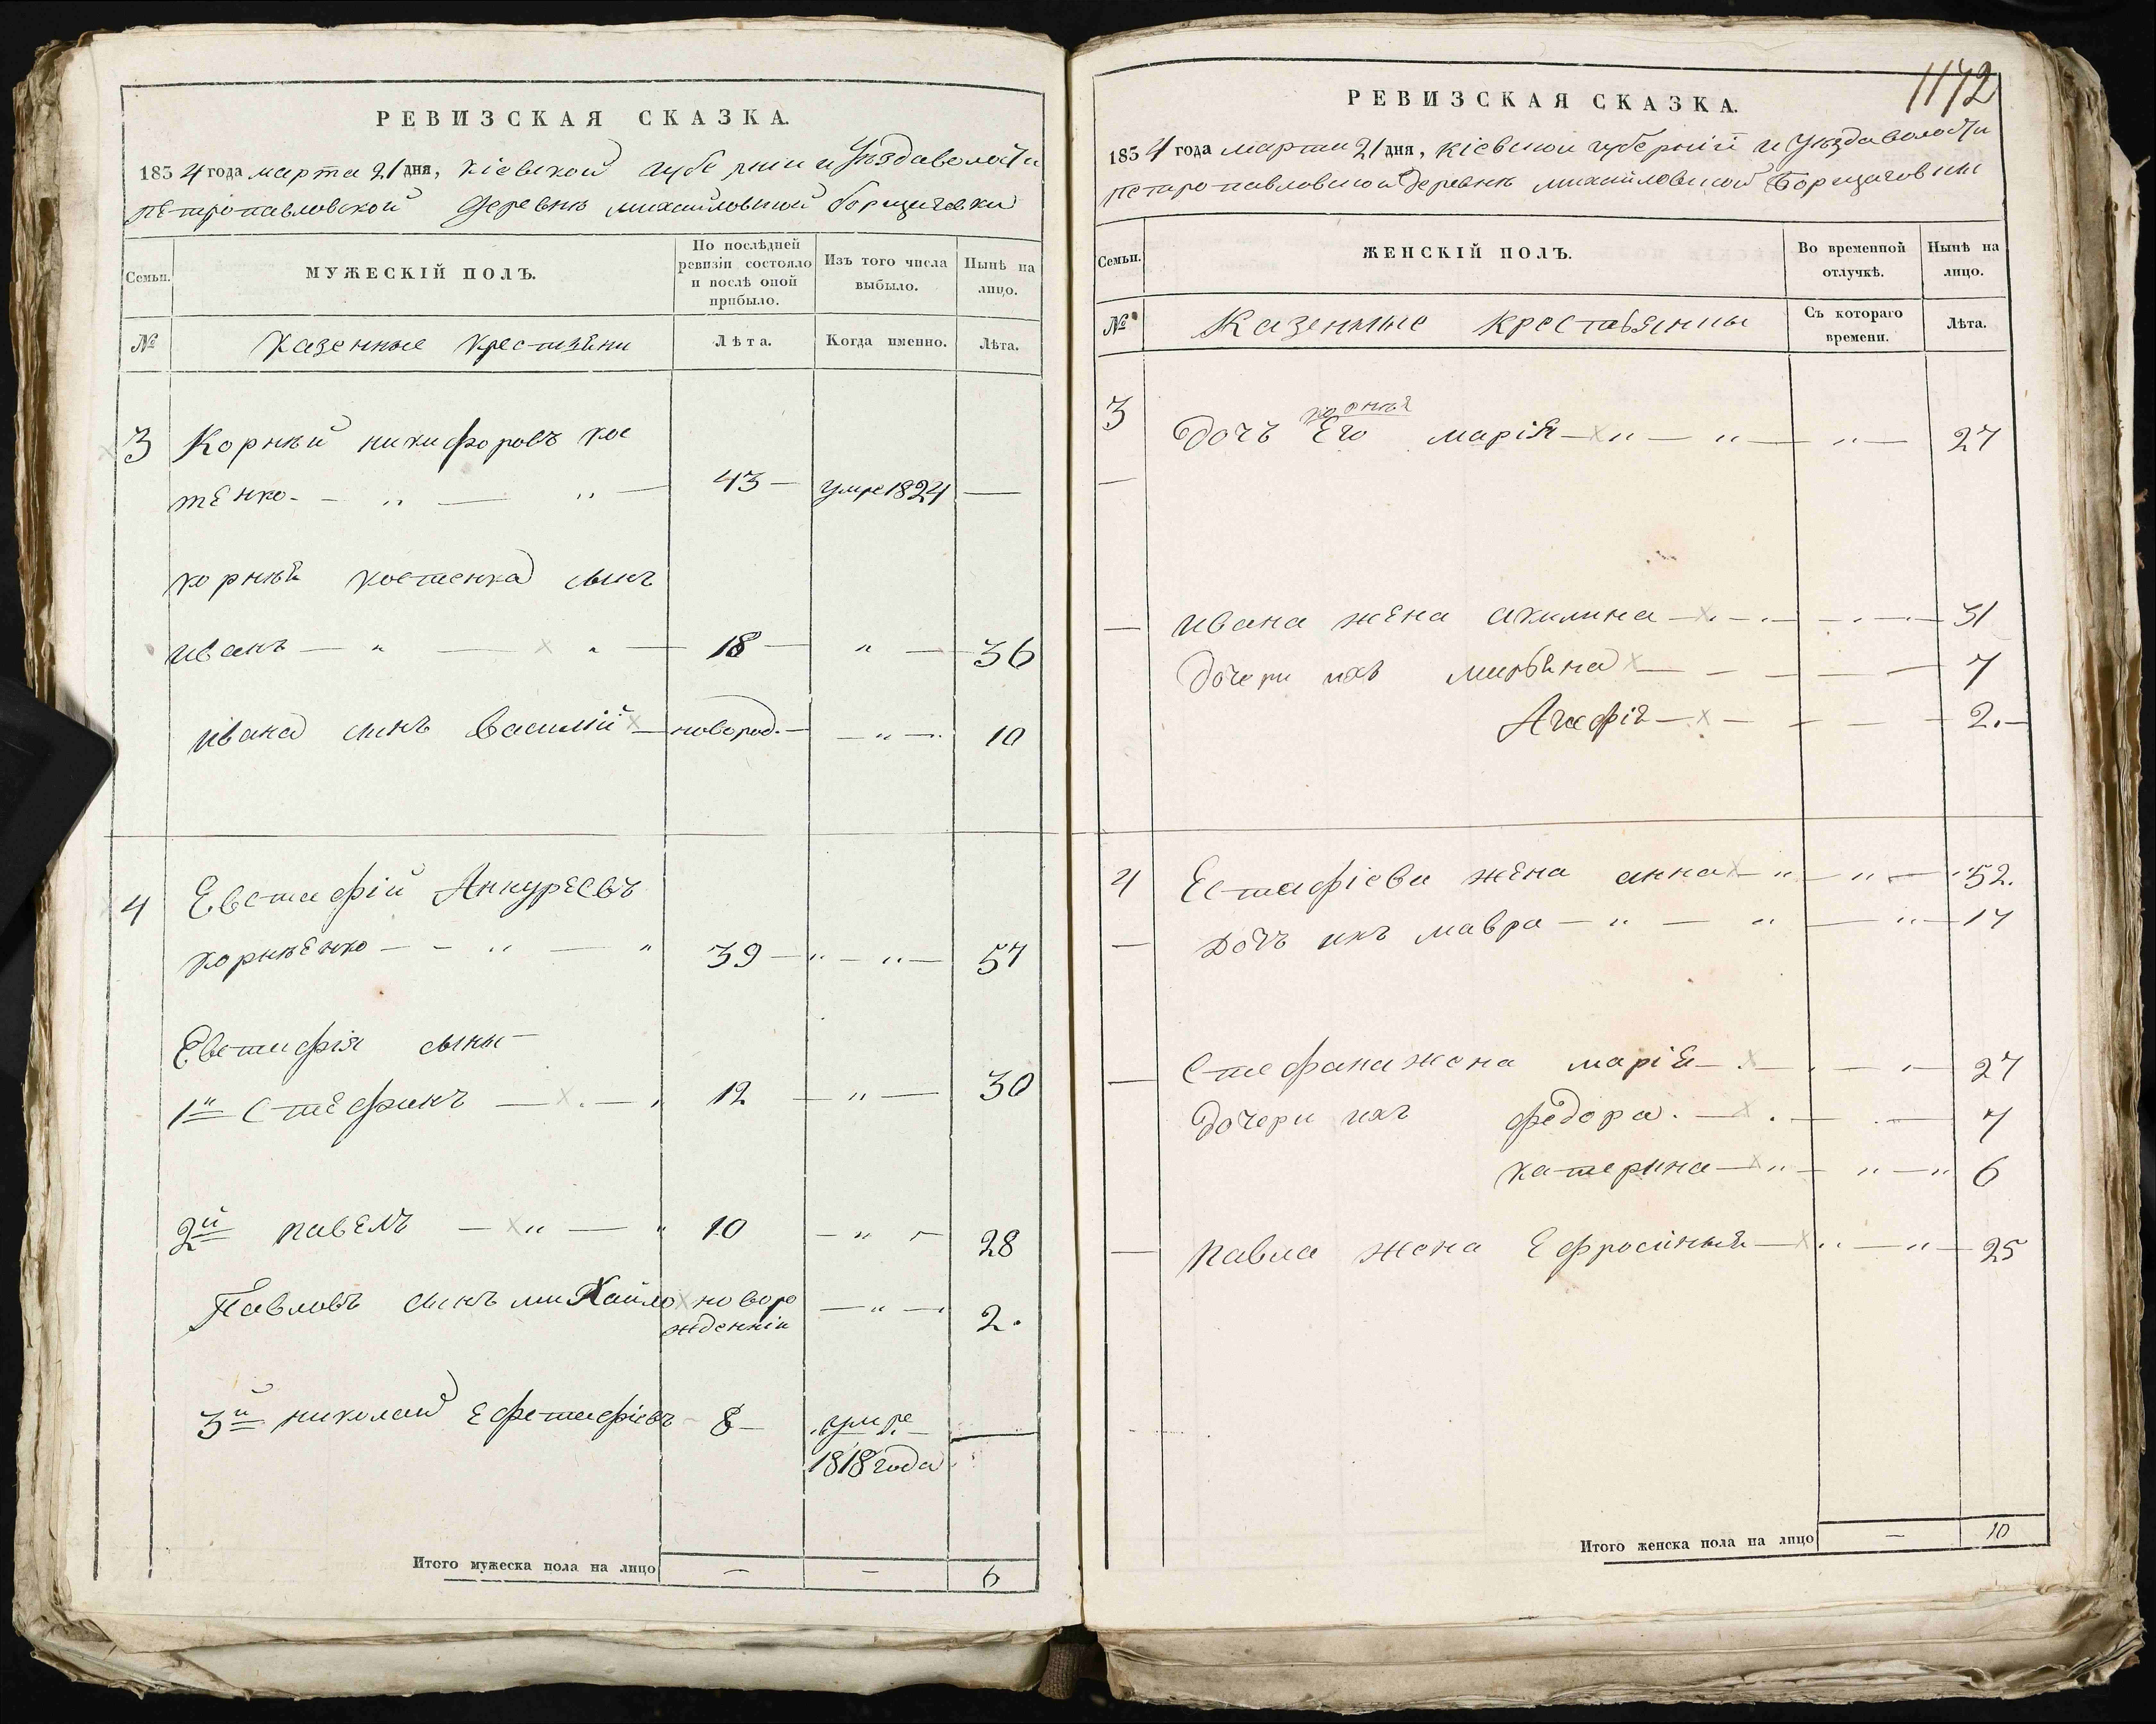 РЕВИЗСКАЯ СКАЗКА.
1834 года марта 21 дня, кіевской губерніи и уѣзда волости
петропавловской деревнѣ михайловской борщаговки
Семьи.
МУЖЕСКІЙ ПОЛЪ.
По послѣдней ревизіи состояло и послѣ оной прибыло.
Изъ того числа выбыло.
Нынѣ на лицо.
№
Казенные крестьяни
Лѣта.
Когда именно.
Лѣта.
3 Корнѣй никифоровъ кос
тенко - - „ — „ — 43 — умре 1824 —
корнѣя костенка сынъ
иванъ — „ — „ — 18 — „ — 36
ивана синъ василій — новород. — — „ — 10
4 Евстафій Анкуреевъ
корнѣенко — - „ — „ 39 — „ — „ — 57
Евстафія сыны —
1й Стефанъ — . — , 12 — „ — 30
2й павелъ — „ — „ 10 — „ - 28
Павловъ синъ михайло новоро — „ — 2.
жденнін
3й николай Ефстафіевъ - 8 — умре
1818 года
Итого мужеска пола на лицо — — 6
1172
РЕВИЗСКАЯ СКАЗКА.
1834 года марта 21 дня, кіевской губерніи и уѣзда волости
петропавловской деревнѣ михайловской Борщаговки
Семьи.
ЖЕНСКІЙ ПОЛЪ.
Во временной отлучкѣ.
Нынѣ на лицо.
№
Казенные крестьянны
Съ котораго времени.
Лѣта.
корнѣя
3 дочъ Его марія — „ — „ — „ — 27
— ивана жена акилина — . - . — - . - . — 31
дочери ихъ — — — — — 7
Агафія — . — — — — 2. —
4 Естафіева жена анна — „ — „ — „ 52.
— дочъ ихъ мавра — „ — „ — „ — 17
— Стефана жена марія — . — . — , — 27
дочери ихъ федора. — . — . — 7
катерина — „ — „ — „ 6
— павла жена Ефросиния — „ — „ — 25
Итого женска пола на лицо — 10